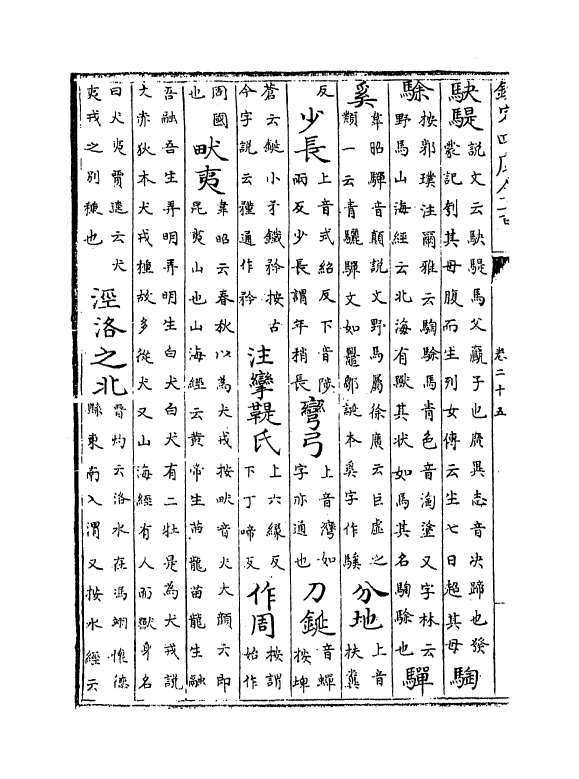 欽定四庫全書
卷二十五
駃騠說文云駃騠馬父臝子也廣異志音决蹄也發
蒙記刳其母腹而生列女傳云生七日超其母騊
駼按郭璞注爾雅云騊駼馬青色音淘塗又字林云
野馬山海經云北海有獸其状如馬其名騊駼也驒
奚韋昭驒音顛說文野馬屬徐廣云巨虚之
類一云青驪驒文如鼉鄒誕本奚字作騱分地上音
扶糞
反少長上音式紹反下音陟
兩反少長謂年稍長彎弓上音灣如
字亦通也刀鋋音蟬
按埤
蒼云鋋小矛鐵矜按古
今字說云通作矜注攣鞮氏上六緣反
下丁啼反作周按謂
始作
周國
也畎夷韋昭云春秋以為犬戎按畎音火大顔云即
昆夷山也山海經云黄帝生苗龍苗龍生融
吾融吾生弄明弄明生白犬白犬有二牡是為犬戎說
文赤狄本犬戎種故多從犬又山海經有人面獸身名
曰犬夷賈逵云犬
夷戎之別種也涇洛之北晉灼云洛水在馮翊懷德
縣東南入渭又按水經云